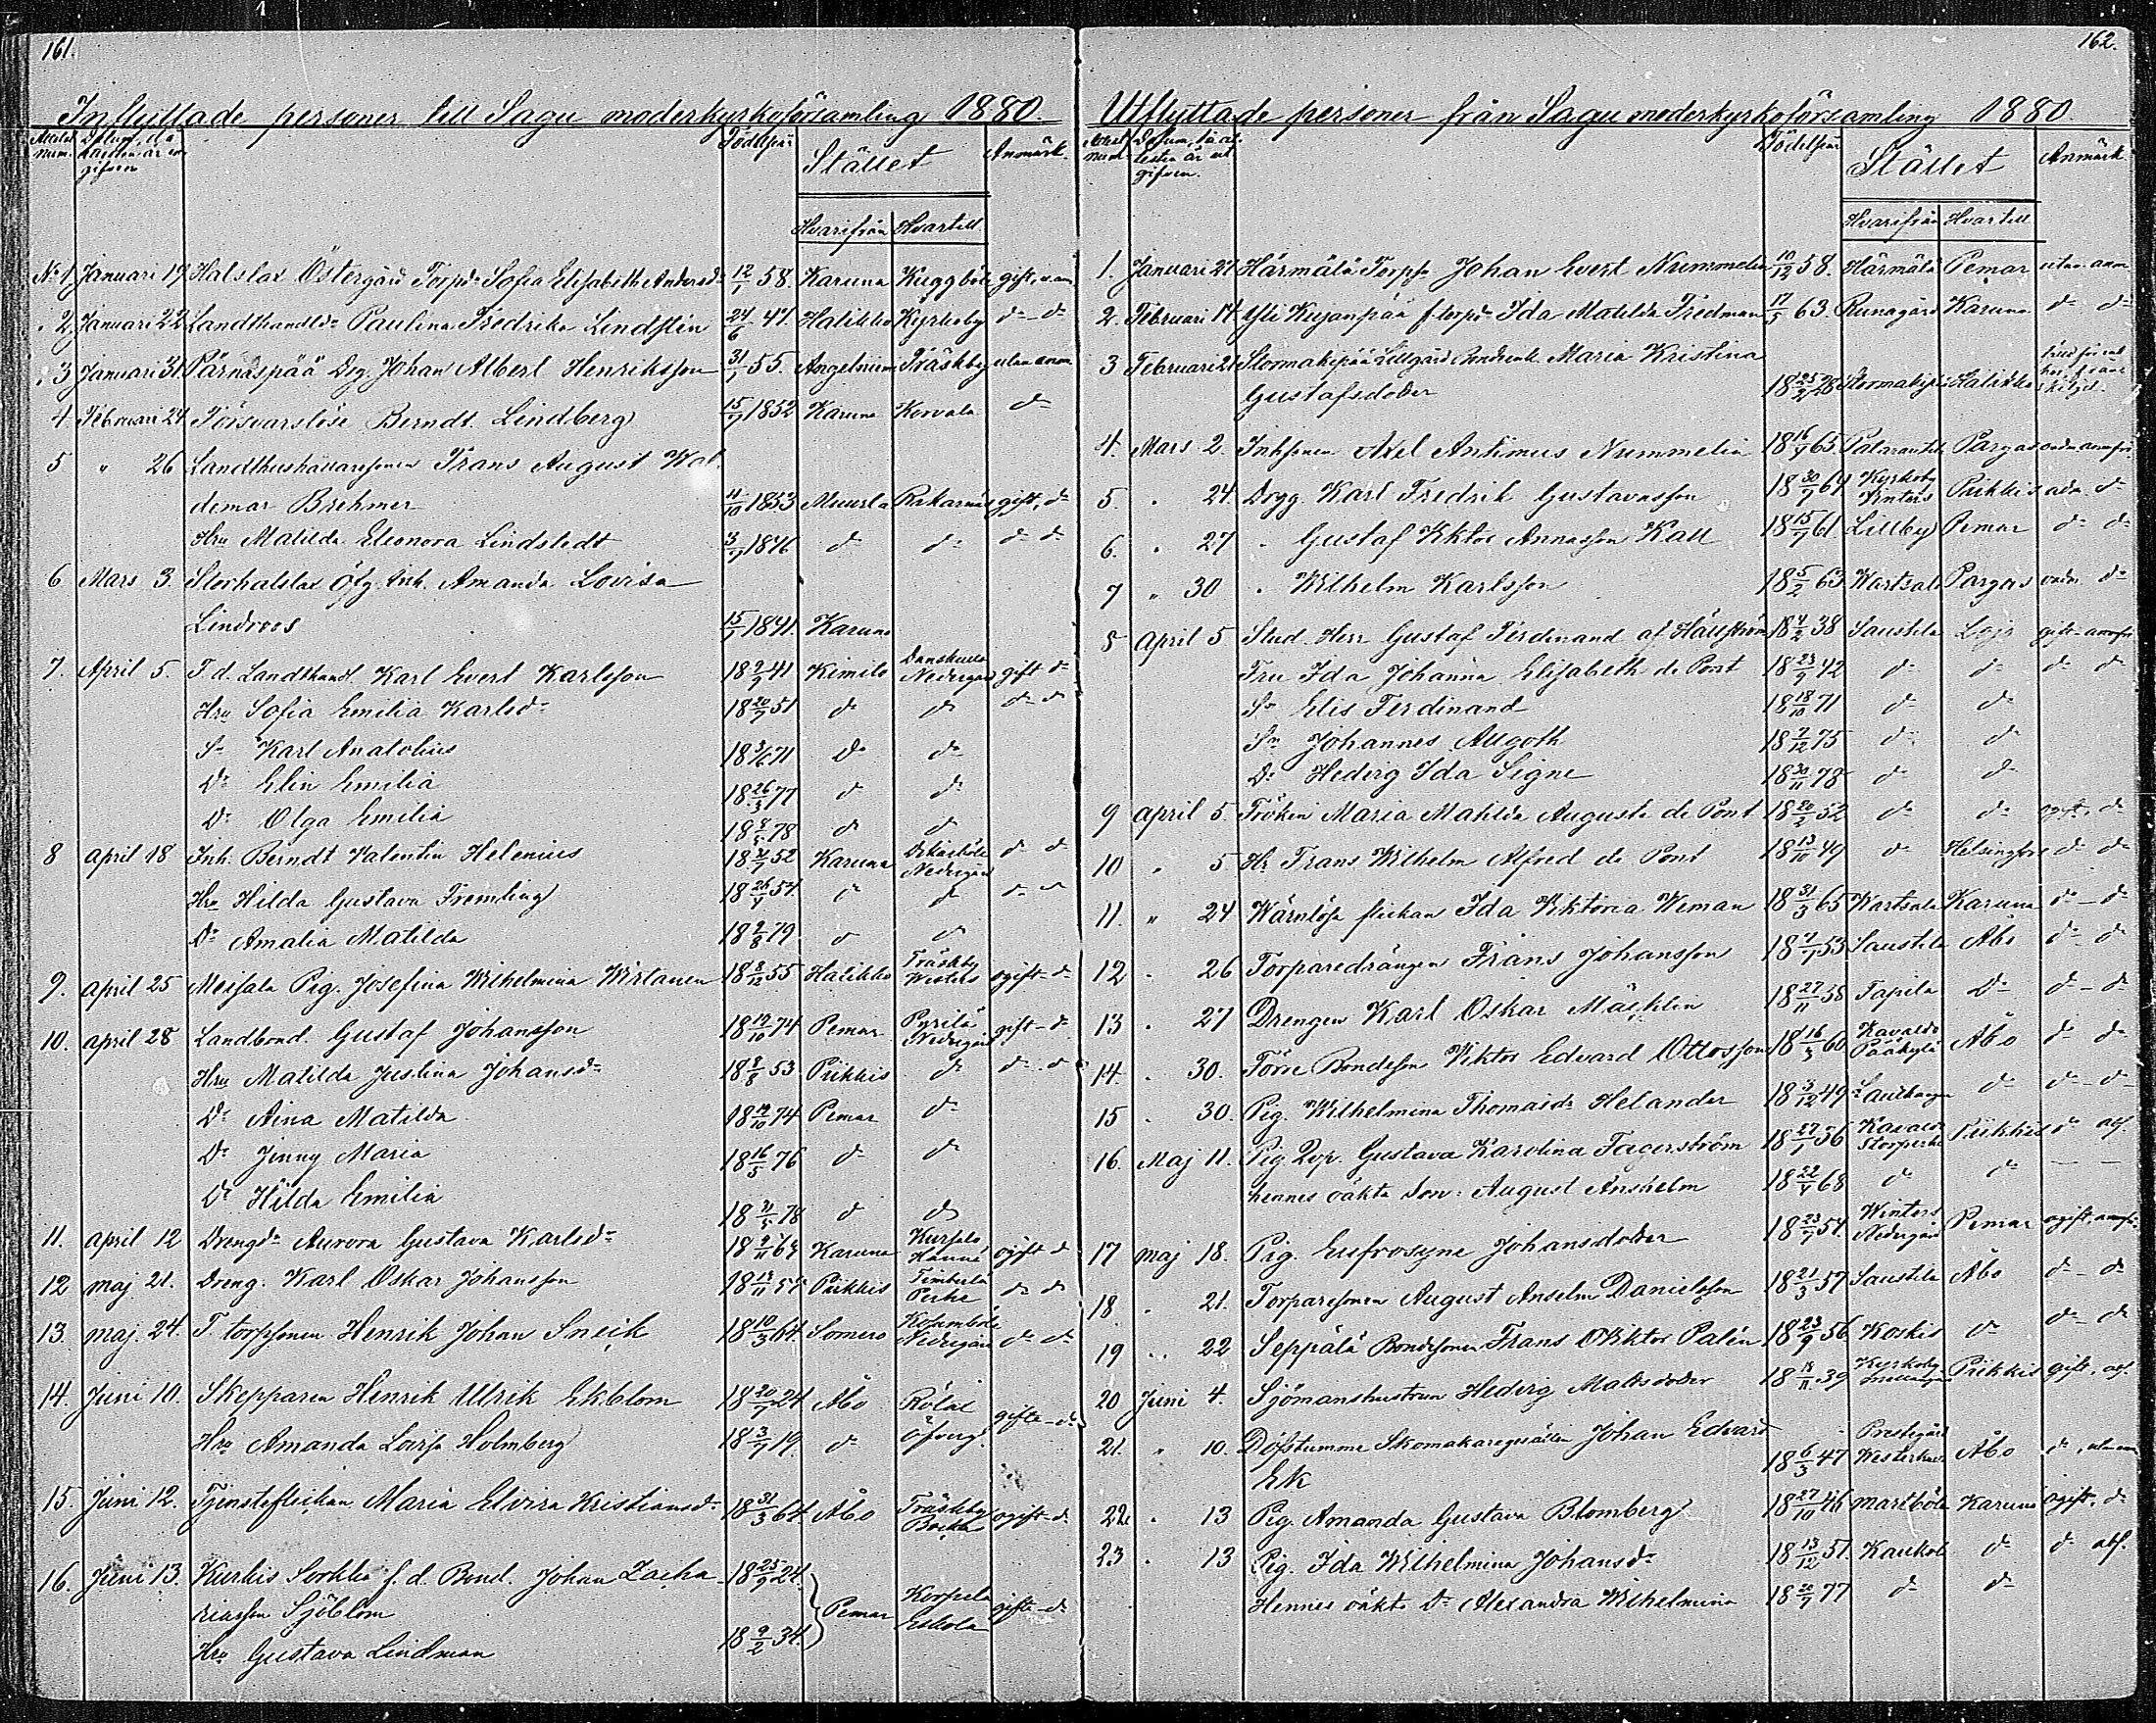 161.
Inflyttade personer till Sagu moderkyrkoförsamling 1880.
Födelseår Stället Anmärk.
Hvarifrån Hvartill
No 1 Januari 19 Halslax Östergård Torpd. Sofia Elisabeth Andersd. 12/1 58. Karuna Kuggböle gift,
2 Januari 22 Paulina Fredrika Lindstén 24/6 47. Halikko Kyrkoby d:o d:o
3 Januari 31 Pärnäspää Drg. Johan Albert Henriksson 31/1 55. Angelniemi Träskby utan anm
4 Februari 24 Försvarslöse Berndt Lindberg 15/9 1852 Karuna Korvala d:o
5 " 26 Landthushållaresonen Frans August Wal-
demar Brehmer 11/10 1853 Muurla Rakarnäs gift, d:o
Hru Matilda Eleonora Lindstedt 3/9 1846 d:o d:o d:o d:o
6 Mars 3. Storhalslax Öfg. Inh. Amanda Lovisa
Lindroos 15/7 1841. Karuna
7. April 5. F.d. Landthandl. Karl Evert Karlsson 18 2/9 41 Kimito Nedergård gift d:o
Hru Sofia Emilia Karlsd:r 18 20/7 51 d:o d:o d:o d:o
S:n Karl Anatolius 18 71 d:o d:o
D:r Elin Emilia 18 26/3 77 d:o d:o
D:r Olga Emilia 18 78 d:o d:o
8 April 18 Inh. Berndt Valentin Helenius 18 52 Karuna Nedergård d:o d:o
Hru Hilda Gustava Fremling 18 26/4 54 d:o d:o d:o
D:r Amalia Matilda 18 2/8 79 d:o d:o
9. April 25 Meisala Pig. Josefina Wilhelmina Wirtanen 18 8/12 55 Halikko Träskby Westers ogift d:o
10. April 28 Landbond. Gustaf Johansson 18 19/10 74 Pemar Pyrilä Nedergård gift d:o
Hru Matilda Justina Johansd:r 18 8/8 53 Piikkis d:o d:o d:o
D:r Aina Matilda 18 19/10 74 Pemar d:o
D:r Jinny Maria 18 16/5 76 d:o d:o
D:r Hilda Emilia 18 31/5 78 d:o d:o
11. April 12 Drengd:r Aurora Gustava Karlsd:r 18 9/11 Karuna ogift d:o
12 maj 21. Dreng. Karl Oskar Johansson 18 Piikkis d:o d:o
13. maj. 24. F. torpsonen Henrik Johan Sneik 18 10/3 64. Somero Nedergård d:o d:o
14. Juni 10. Skepparen Henrik Ulrik Ekblom 18 20/7 24 Åbo Rölax gifta d:o
Hru Amanda Lovisa Holmberg 18 3/7 19. d:o Öfverg.
15. Juni 12. Tjensteflickan Maria Elvira Kristiansd:r 18 31/3 64. Åbo Träskby ogift d:o
16. Juni 13. Kurkis Sorkka f.d. Bond. Johan Zacha- 18 25/9 24.
riasson Sjöblom Pemar Korpela Eskola gifta d:o
Hru Gustava Lindman 18 9/2 34.
162.
Utflyttade personer från Sagu moderkyrkoförsamling 1880.
Födelseår Stället Anmärk.
Hvarifrån Hvartill
1. Januari 27 Härmälä Torpsn Johan Evert Nummelin 10/12 58. Härmälä Pemar utan anm
2. Februari 14 Yli Kujanpää f. torpd:r Ida Matilda Fredman 17/5 63. Runagård Karuna d:o d:o
3 Februari 21 Stormakipää Lillgård Maria Kristina
Gustafsdoter 18 25/2 28 Stormakipää Halikko
4. Mars 2. Inhsonen Axel Antimus Nummelin 18 16/9 65 Pargas
5. " 24. Drgg. Karl Fredrik Gustavasson 18 30/7 61 Kyrkoby Winters Piikkis d:o
6. " 27 " Gustaf Viktor Annasson Kall 18 15/7 61. Lillby Pemar d:o d:o
7 " 30 " Wilhelm Karlsson 18 5/2 63 Wartsala Pargas d:o
8 April 5 Stud. Herr Gustaf Ferdinand af Hällström 18 4/2 38 Saustila Lojo gift
Fru Ida Johanna Elisabeth de Pont 18 23/9 42 d:o d:o d:o d:o
S:n Elis Ferdinand 18 18/10 71 d:o d:o
S:n Johannes Augoth 18 7/12 75 d:o d:o
D:r Hedvig Ida Signe 18 30/11 78 d:o d:o
9 April 5 Fröken Maria Matilda Augusta de Pont 18 20/2 52 d:o d:o ogift, d:o
10 " 5 Hr Frans Wilhelm Alfred de Pont 18 13/10 49 d:o Helsingfors d:o d:o
11. " 24 Wärnlösa flickan Ida Viktoria Weman 18 31/3 65 Wartsala Karuna d:o d:o
12 " 26 Torparedrängen Frans Johansson 18 53 Saustila Åbo d:o d:o
13 " 27 Drengen Karl Oskar Mäcklin 18 27/11 58 Tapila D:o d:o d:o
14. " 30. Förre Bondeson Viktor Edvard Ottosson 18 16/3 60 Kavaldo Pääkylä Åbo d:o d:o
15 " 30. Pig. Wilhelmina Thomasd:r Helander 18 3/12 49 d:o d:o d:o
16. Maj 11. Pig. Gustava Karolina Fagerström 18 27/1 36 Piikkis d:o
hennes oäkta Son: August Anshelm 18 22/4 68 d:o d:o
17 Maj 18. Pig. Eufrosyne Johansdoter 18 23/7 54. Winters Nedergård Pemar ogift,
18 " 21. Torparesonen August Anselm Danielsson 18 21/3 57 Saustila Åbo d:o d:o
19 " 22 Seppälä Bondesonen Frans Viktor Palén 18 23/9 56 Koskis d:o d:o d:o
20 Juni 4. Sjömanshustrun Hedvig Matsdoter 18 39 Kyrkoby Piikkis gift,
21. " 10. Döfstumme Skomakaregesällen Johan Edvard
Ek 18 6/3 47 Prestgård Åbo d:o
22. " 13 Pig. Amanda Gustava Blomberg 18 27/10 46 Martböle Karuna ogift, d:o
23 " 13 Pig. Ida Wilhelmina Johansd:r 18 13/12 51 Kaukola d:o d:o
Hennes oäkta D:r Alexandra Wilhelmina 18 77 d:o d:o